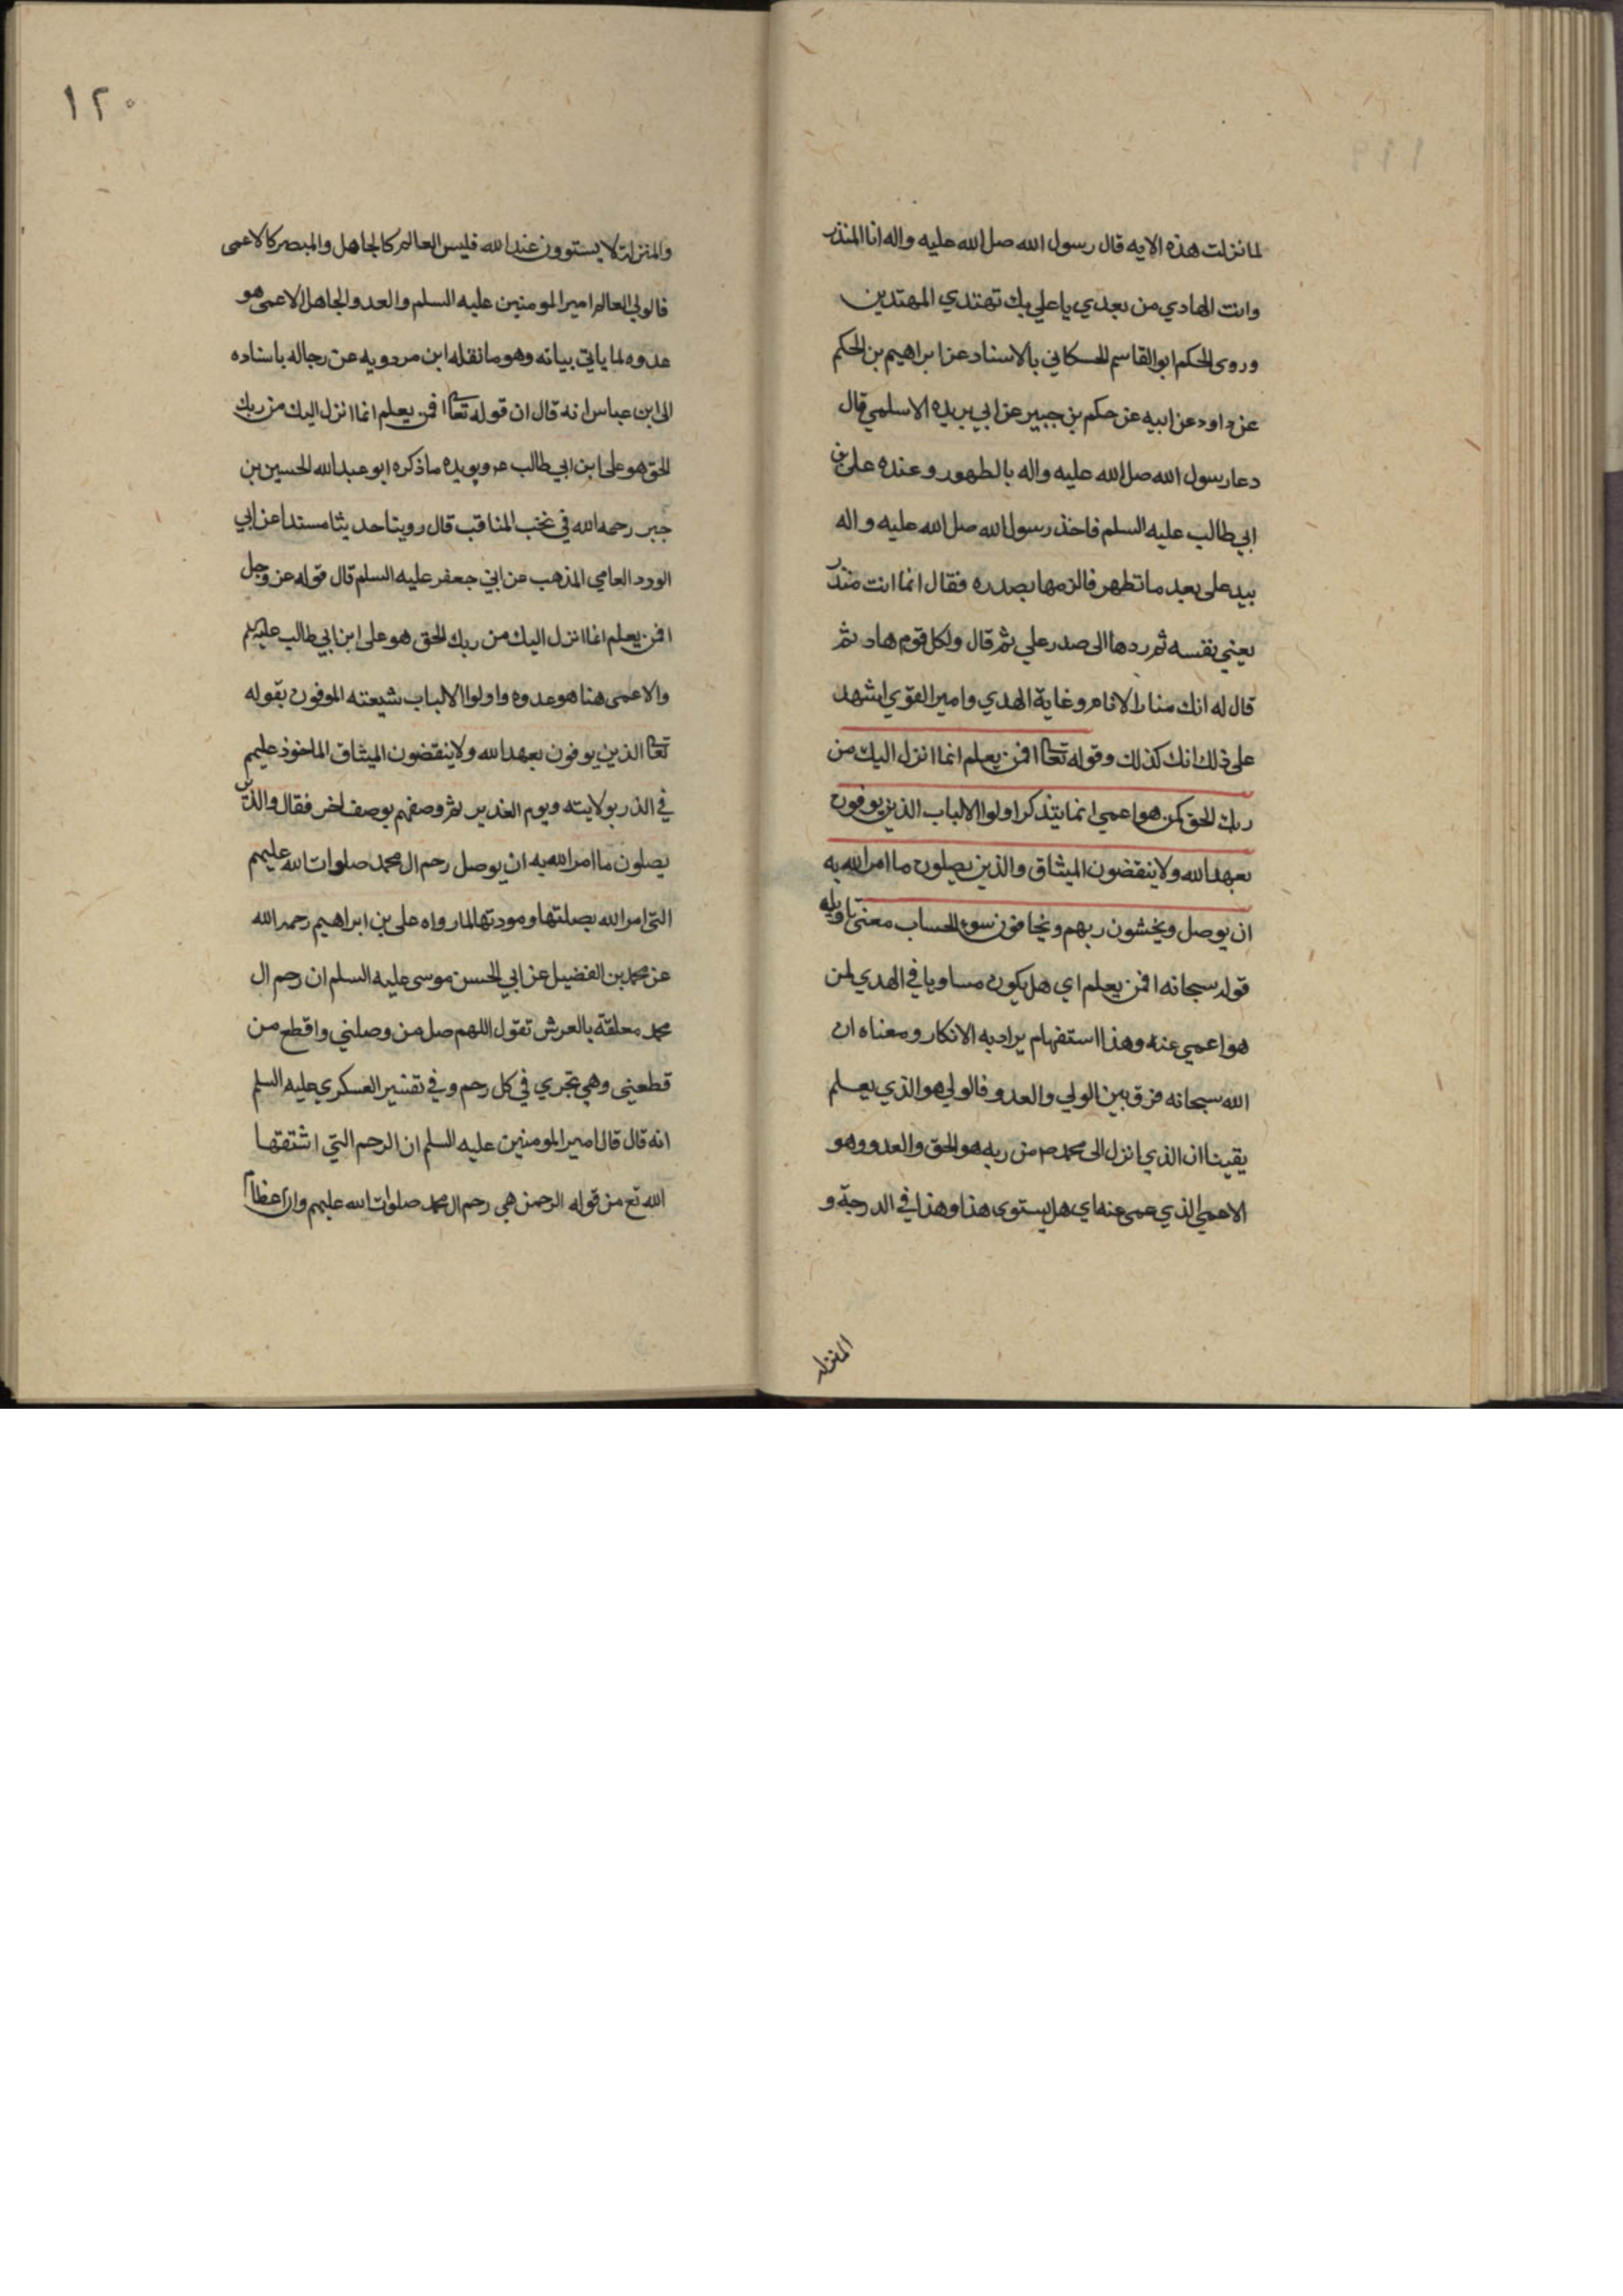 لما نزلت هذه الايه قال رسول الله صلى الله عليه واله انا المنذر
وانت الهادي من بعدي يا علي بك تهتدي المهتدين
وروى الحكم ابو القاسم الحسكاني بالاسناد عن ابراهيم بن الحكم
عن داود عن ابيه عن حكم بن جبير عن ابي بريده الاسلمي قال
دعا رسول الله صل الله عليه واله بالطهور وعنده على بن
ابي طالب عليه السلم فاخذ رسول الله صل الله عليه واله
بيد على بعد ما تطهر فالزمها بصدره فقال انما انت منذر
يعني نفسه ثم ردها الى صدر علي ثم قال ولكل قوم هاد ثم
قال له انك منار الانام وغاية الهدي وامير القوي اشهد
على ذلك انك كذلك وقوله تعا افمن يعلم انما انزل اليك من
ربك الحق كمن هو اعمي انما يتذكر اولوا الالباب الذين يوفون
بعهد الله ولا ينقضون الميثاق والذين يصلون ما امر الله به
ان يوصل ويخشون ربهم ويخافون سوء الحساب معنى تاويله
قوله سبحانه افمن يعلم اي هل يكون مساويا في الهدي لمن
هو اعمي عنه وهذا استفهام يراد به الانكار ومعناه ان
الله سبحانه فرق بين الولي والعدو فالولي هو الذي يعلم
يقينا ان الذي انزل الى محمد ص من ربه هو الحق والعدو وهو
الاعمي الذي عمى عنه اي هل يستوى هذا وهذا في الدرجة و
المنزله
١٢٠
والمنزلة لا يستوون عند الله فليس العالم كالجاهل والمبصر كالاعمى
فالولي العالم امير المومنين عليه السلم والعدو الجاهل الاعمى هو
عدوه لما ياتي بيانه وهو ما نقله ابن مردويه عن رجاله باسناده
الى ابن عباس انه قال ان قوله تعا افمن يعلم انما انزل اليك من ربك
الحق هو على ابن ابي طالب ع ويويده ما ذكره ابو عبد الله الحسين بن
جبر رحمه الله في نخب المناقب قال روينا حديثا مسندا عن ابي
الورد العامي المذهب عن ابي جعفر عليه السلم قال قوله عز وجل
افمن يعلم انما انزل اليك من ربك الحق هو على ابن ابي طالب عليه السلم
والاعمى هنا هو عدوه واولوا الالباب شيعته الموفون بقوله
تعا الذين يوفون بعهد الله ولا ينقضون الميثاق الماخوذ عليهم
في الذر بولايته ويوم الغدير ثم وصفهم بوصف اخر فقال والذين
يصلون ما امر الله به ان يوصل رحم ال محمد صلوات الله عليهم
التى امر الله بصلتها ومودتها لما رواه على بن ابراهيم رحمه الله
عن محمد بن الفضيل عن ابي الحسن موسى عليه السلم ان رحم ال
محمد معلقة بالعرش تقول اللهم صل من وصلني واقطع من
قطعني وهي تجري في كل رحم وفي تفسير العسكري عليه السلم
انه قال قال امير المومنين عليه السلم ان الرحم التي اشتقها
الله تع من قوله الرحمن هي رحم ال محمد صلوات الله عليهم وان اعظام